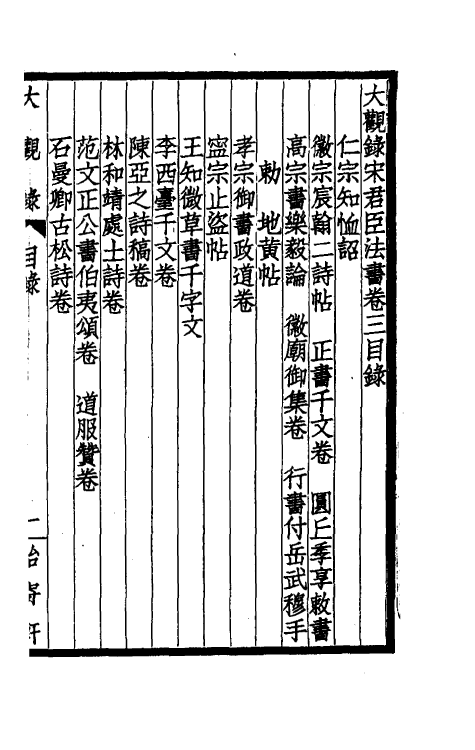 大觀錄宋君臣法書卷三目錄
仁宗知恤詔
徽宗宸翰二詩帖　正書千文卷　圓丘季享敕書
高宗書樂毅論　徽廟御集卷　行書付岳武穆手
勅　地黄帖
孝宗御書政道卷
寍宗止盜帖
王知微草書千字文
李西臺千文卷
陳亞之詩稿卷
林和靖處士詩卷
范文正公書伯夷頌卷　道服贊卷
石曼卿古松詩卷
大觀錄　目錄　一　怡寄軒